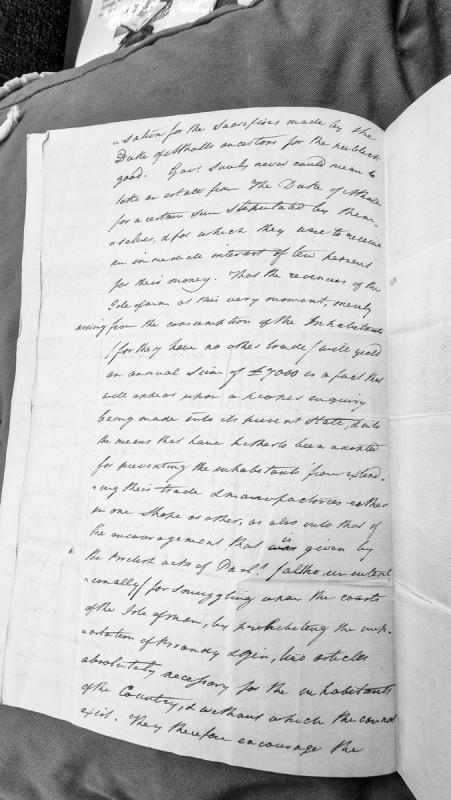 "sation for the Sacrifices made by the
Duke of Atholls ancestors for the publick
good. Gov.t surely never could mean to
take an estate from The Duke of Atholl
for a certain sum stipulated by them-
"selves, & for which they were to receive
an immediate interest of ten percent
for their money. That the revenues of the
Isle of man at this very moment, merely
arising from the consumption of the Inhabitants
/ for they have no other trade / will yield
an annual Sum of £7000 is a fact that
will appear upon a proper enquiry
being made into its present State, & into
the means that have hetherto been adopted
for preventing the inhabitants from extend-
"ing their trade & manufactories either
in one Shape or other, as also into that of
the encouragement that is given by
the British acts of Parl.t / altho unintent
"ionally / for smuggling upon the coasts
of the Isle of Man, by prohibiting the imp-
"ortation of Brandy & Gin, two articles
absolutely necessary for the inhabitants
of the Country, & without which they cannot
exist. They therefore encourage the